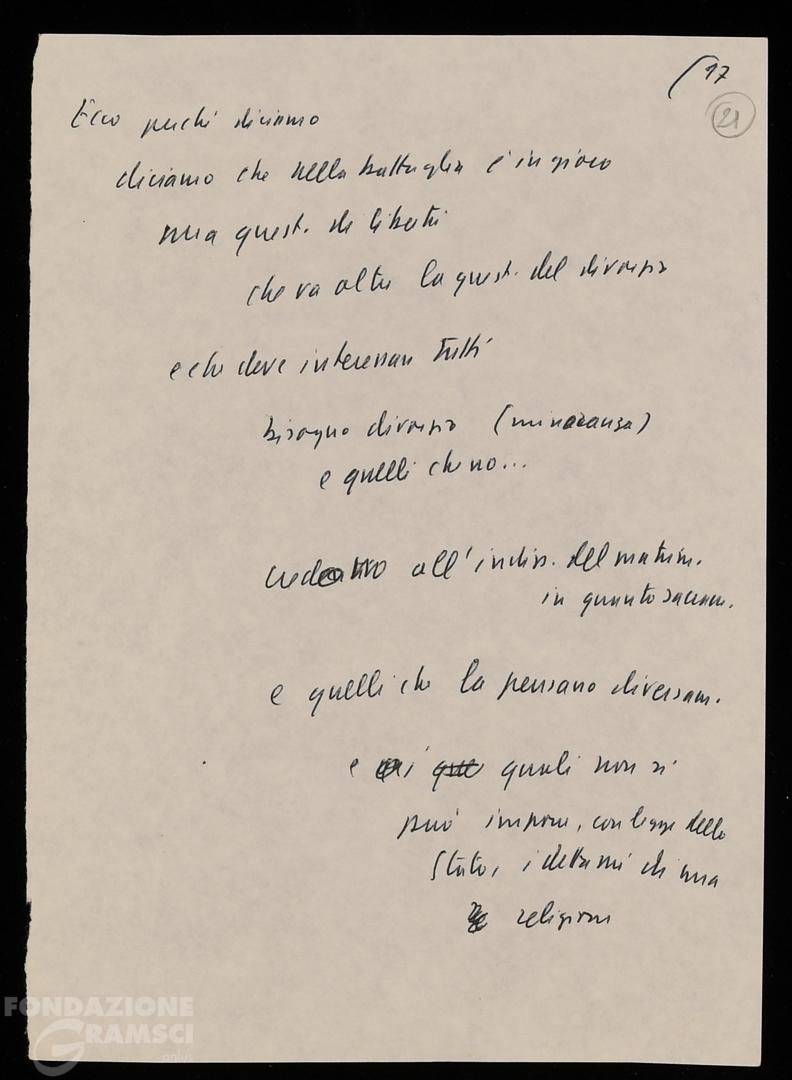 17
21
Ecco perché diciamo
diciamo che nella battaglia è in gioco
una quest. di libertà
che va oltre la quest. del divorzio
e che deve interessare tutti
bisogno divorzio (minoranza)
e quelli che no...
credono all'indiss. del matrim.
in quanto sacram.
e quelli che la pensano diversam.
e ai quali non si
può imporre, con legge dello
Stato, i dettami di una
religione
FONDAZIONE
GRAMSCI
onlus